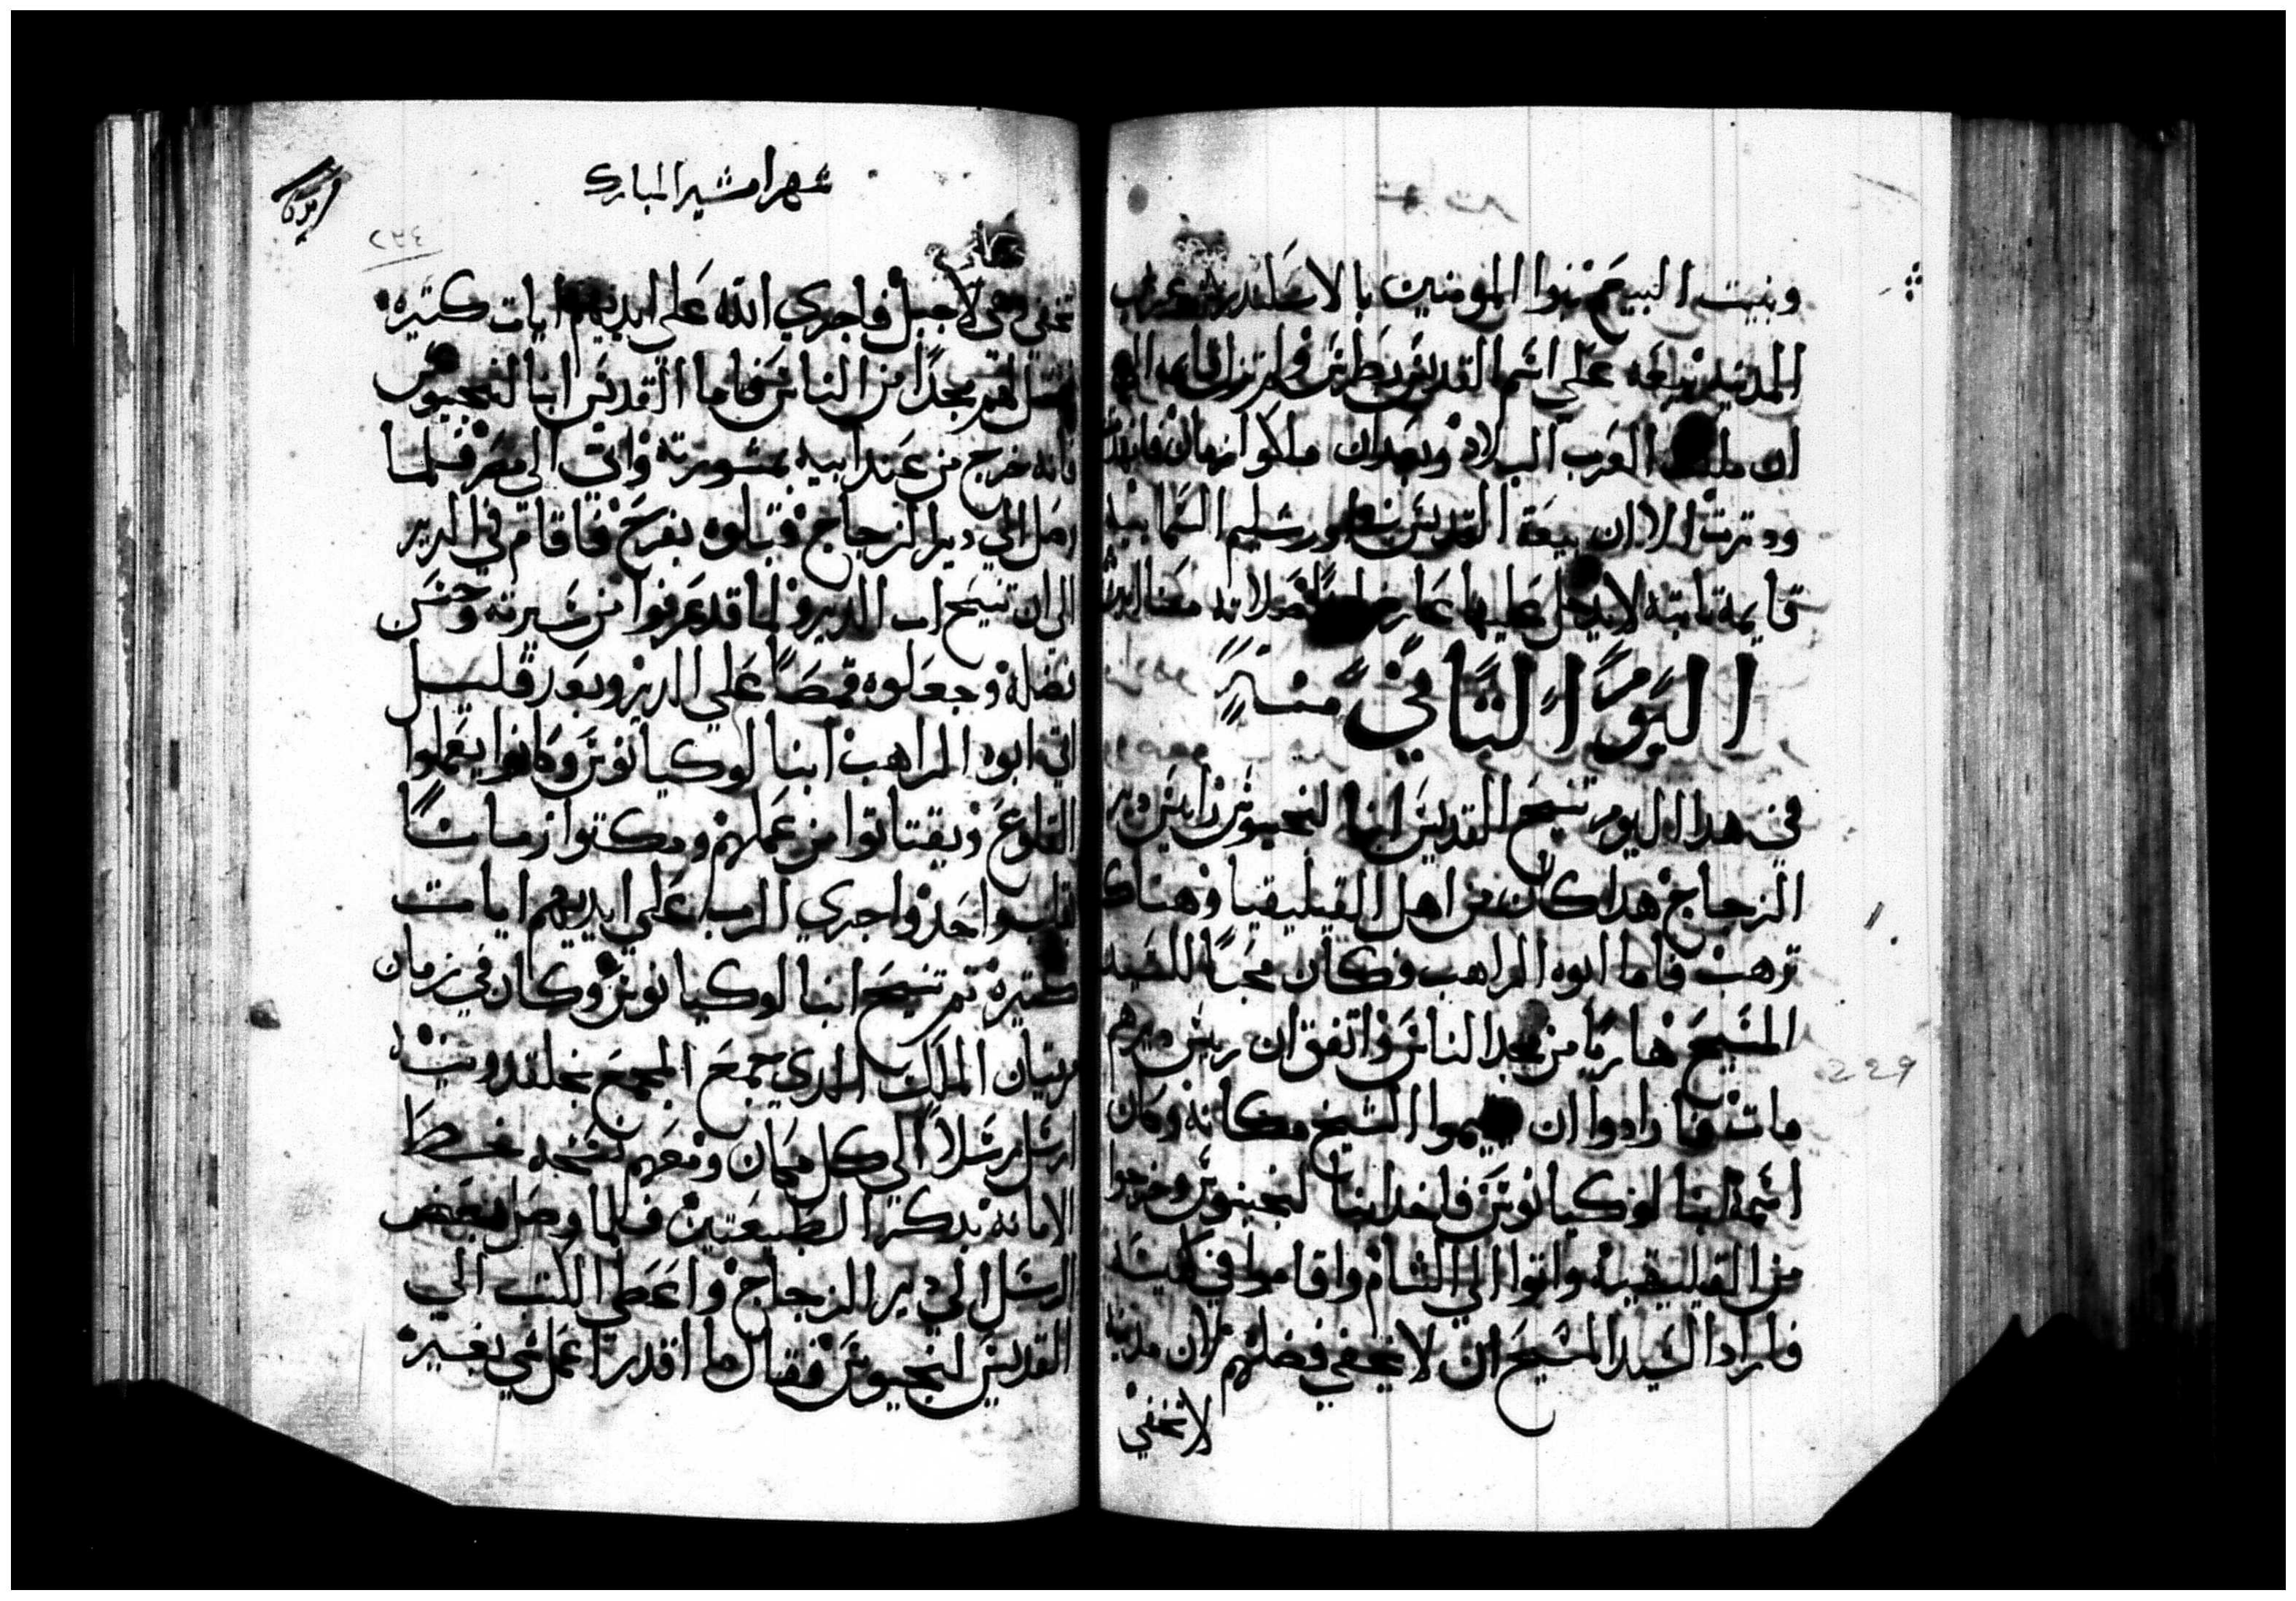 وبنيت البيع بنوا المومنين بالاسكندريه غربي
المدينه بيعه على اسم القديس بطرس ولم تزل قايمه الى
ان ملك العرب البلاد وبعد ان ملكوا زمان فانهدت
ودترت الا ان بيعة القديس باورشليم السماييه
قايمة تابته لا يدخل عليها عارض صلاته معنا امين
اليَوم الثاني منه
في هدا اليوم تنيح القديس انبا لنجينوس رايس دير
الزجاج هدا كان من اهل القيليقيا وهناك
ترهب فاما ابوه الراهب وكان محبًا للسيد
المسيح هاربًا من مجد الناس واتفق ان ريس ديرهم
مات فارادوا ان يقيموا الشيخ مكانه وكان
اسمه انبا لوكيانوس فاخد انبا لنجينوس وخرجوا
من القيليقيه واتوا الي الشام واقاموا في كنيسه
فاراد السيد المسيح ان لا يخفي فضلهم لان مدينه
لا تخفي
شهر امشير المبارك
٢٢٤
تخفي وهي لا جبل فاجري الله على ايديهم ايات كتيره
لهم مجدًا من الناس فاما القديس انبا لنجينوس
فانه خرج من عند ابيه بمشورته واتى الى مصر فلما
وصل الي دير الزجاج قبلوه بفرح فاقام في الدير
الى ان تنيح اب الدير ولما قد عرفوا من سيرته وحسن
فضله وجعلوه قمصًا علي الدير وبعد قليل
اتى ابوه الراهب انبا لوكيانوس وكانوا يعملوا
القلوع ويقتاتوا من عملهم ومكتوا زمانًا
بقلب واحد واجري الرب علي ايديهم ايات
كتيرة تم تنيح انبا لوكيانوس وكان في زمان
مرقيان الملك الدي جمع المجمع بخلقدونيه
ارسل رسلا الي كل مكان ومعهم نسخه بخط
الامانه بدكر الطبيعتين فلما وصل بعض
الرسل الي دير الزجاج واعطى الكتب الي
القديس لنجينوس فقال ما اقدر اعمل شي بغير
229